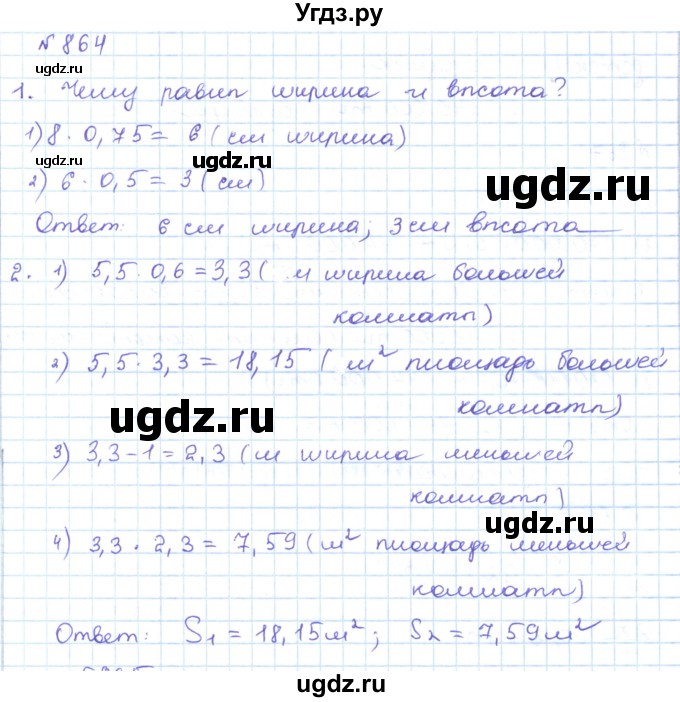 Угдз.ру
№ 864
ugdz.ru
1. Чему равна ширина и высота?
1) 8 · 0,75 = 6 (см ширина)
ugdz.ru
ugdz.ru
2) 6 · 0,5 = 3 (см)
ugdz.ru
Ответ: 6 см ширина, 3 см высота
2. 1) 5,5 · 0,6 = 3,3 ( м ширина большей
комнаты)
ugdz.ru
2) 5,5 · 3,3 = 18,15 ( м² площадь большей
комнаты)
ugdz.ru
3) 3,3 - 1 = 2,3 (м ширина меньшей
комнаты)
ugdz.ru
ugdz.ru
4) 3,3 · 2,3 = 7,59 (м² площадь меньшей
комнаты)
ugdz.ru
Ответ: S₁ = 18,15 м²; S₂ = 7,59 м²
ugdz.ru